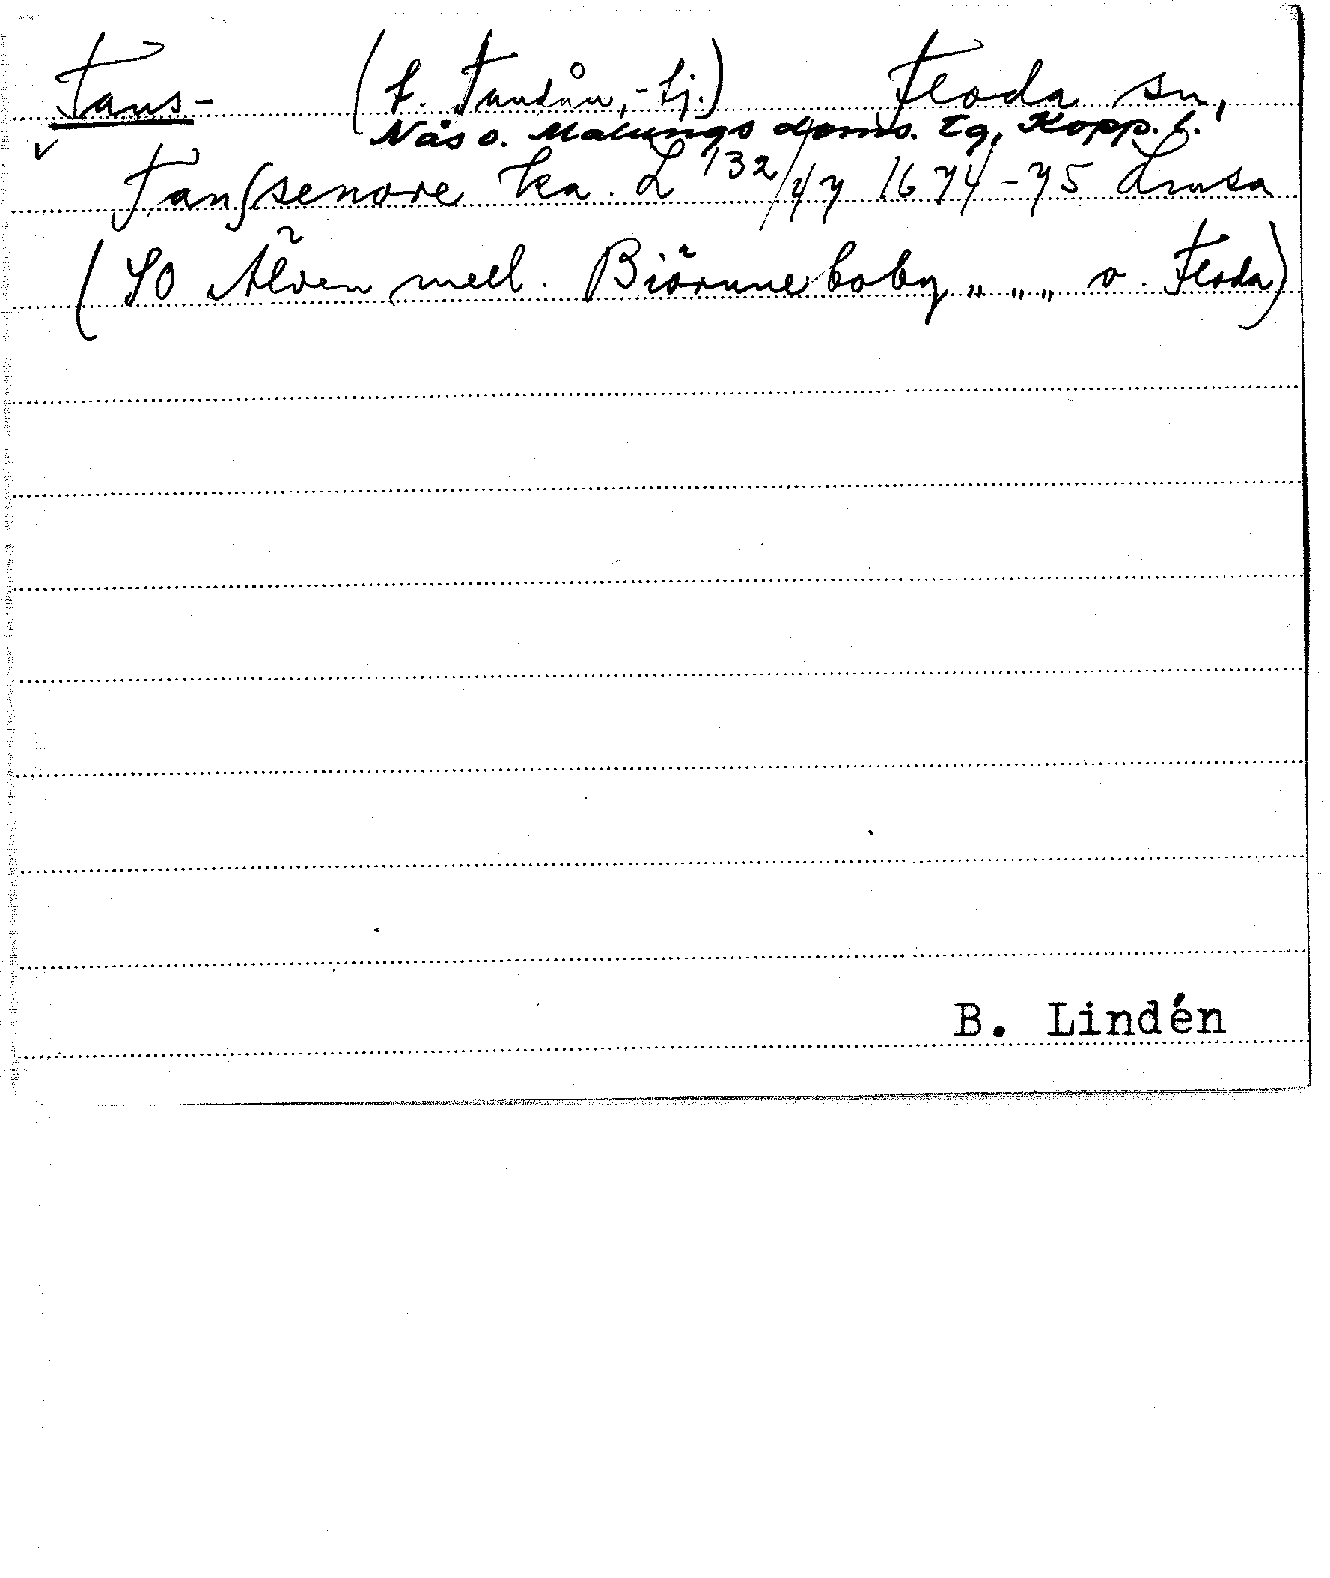 Fans- (t. Fansån, -tj.) Floda sn,
Nås o. Malungs doms. tg, Kopp. l.
Fanſsenovre ka. L 132/47 1674-75 Lmsa
(SO Älven mell. Biörnneboby „ „ „ o. Floda)
B. Lindén